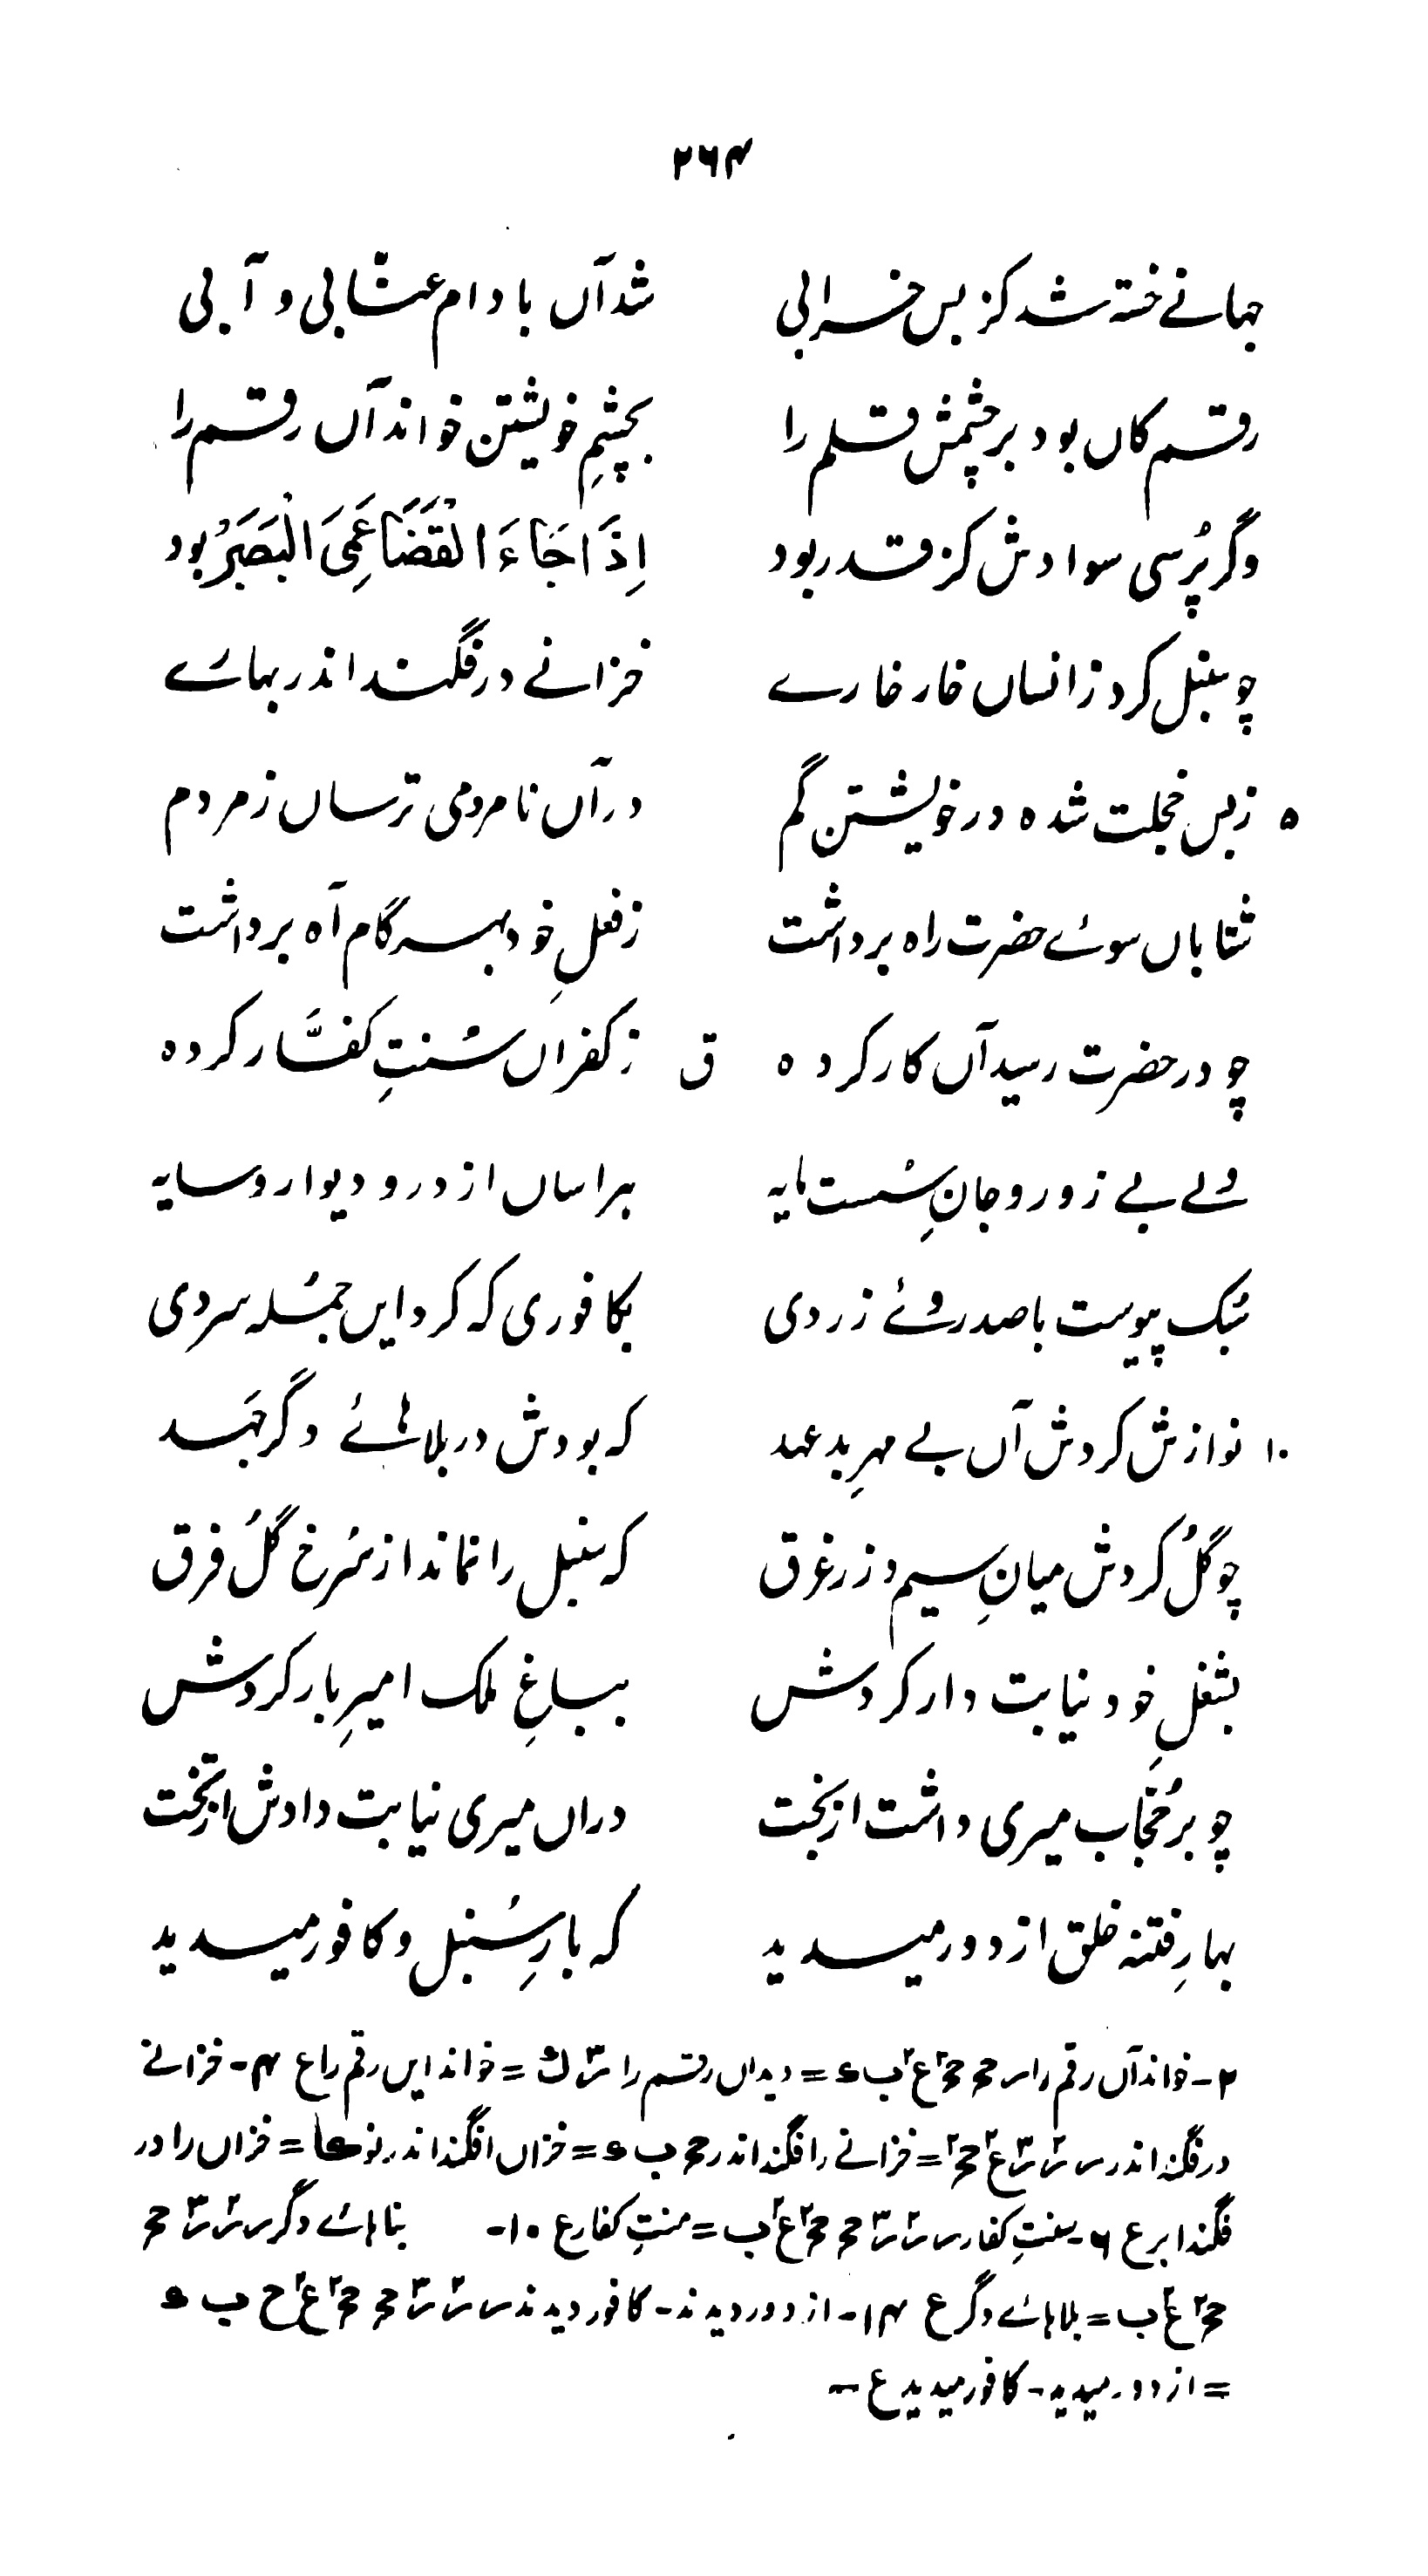 ۲۶۴
جہانے خستہ شد کز بس خرابی شد آں بادام عنابی و آبی
رقم کاں بود بر چشمش قلم را بچشمِ خویشتن خواند آں رقم را
وگر پُرسی سوادش کز قدر بود اِذَا جَاءَ الْقَضَا عَمِیَ الْبَصَرُ بود
چو سنبل کرد زانساں خار خارے خزانے در فگند اندر بہارے
۵ زبس خجلت شدہ در خویشتن گم در آں نامردمی ترساں ز مردم
شتاباں سوئے حضرت راہ برداشت ز فعلِ خود بہر گام آہ برداشت
چو در حضرت رسید آں کار کردہ ق ز کفراں سُنتِ کفَّار کردہ
دلے بے زور و جانِ سُست مایہ ہراساں از در و دیوار و سایہ
سُبک پیوست با صد روئے زردی بکافوری کہ کرد ایں جملہ سردی
۱۰ نوازش کردش آں بے مہرِ بدعہد کہ بودش در بلاہائے دگر جہد
چو گُل کردش میانِ سیم و زر غرق کہ سنبل را نماند از سُرخ گُل فرق
بشغلِ خود نیابت دار کردش بباغِ ملک امیرِ بار کردش
چو بر حُجّاب میری داشت از بخت دراں میری نیابت دادش از تخت
بہارِ فتنہ خلق از دور میدید کہ بارِ سُنبل و کافور میدید
۲- خواند آں رقم را س ح ح۲ ع۲ ب = دید آں رقم را = خواند ایں رقم را ع ۴- خزانے
در فگند اندر س ع۲ ح۲ = خزانے را فگند اندر ح ب = خزاں افگند اندر = خزاں را در
فگند ابر ع ۶- سنتِ کفار س ح ح۲ ع۲ ب = منتِ کفار ع ۱۰- بناہائے دگر س ح
ح۲ ع۲ ب = بلاہائے دگر ع ۱۴- از دور دیدند - کافور دیدند س ح ح۲ ع۲ ح ب
= از دور میدید - کافور میدید ع -